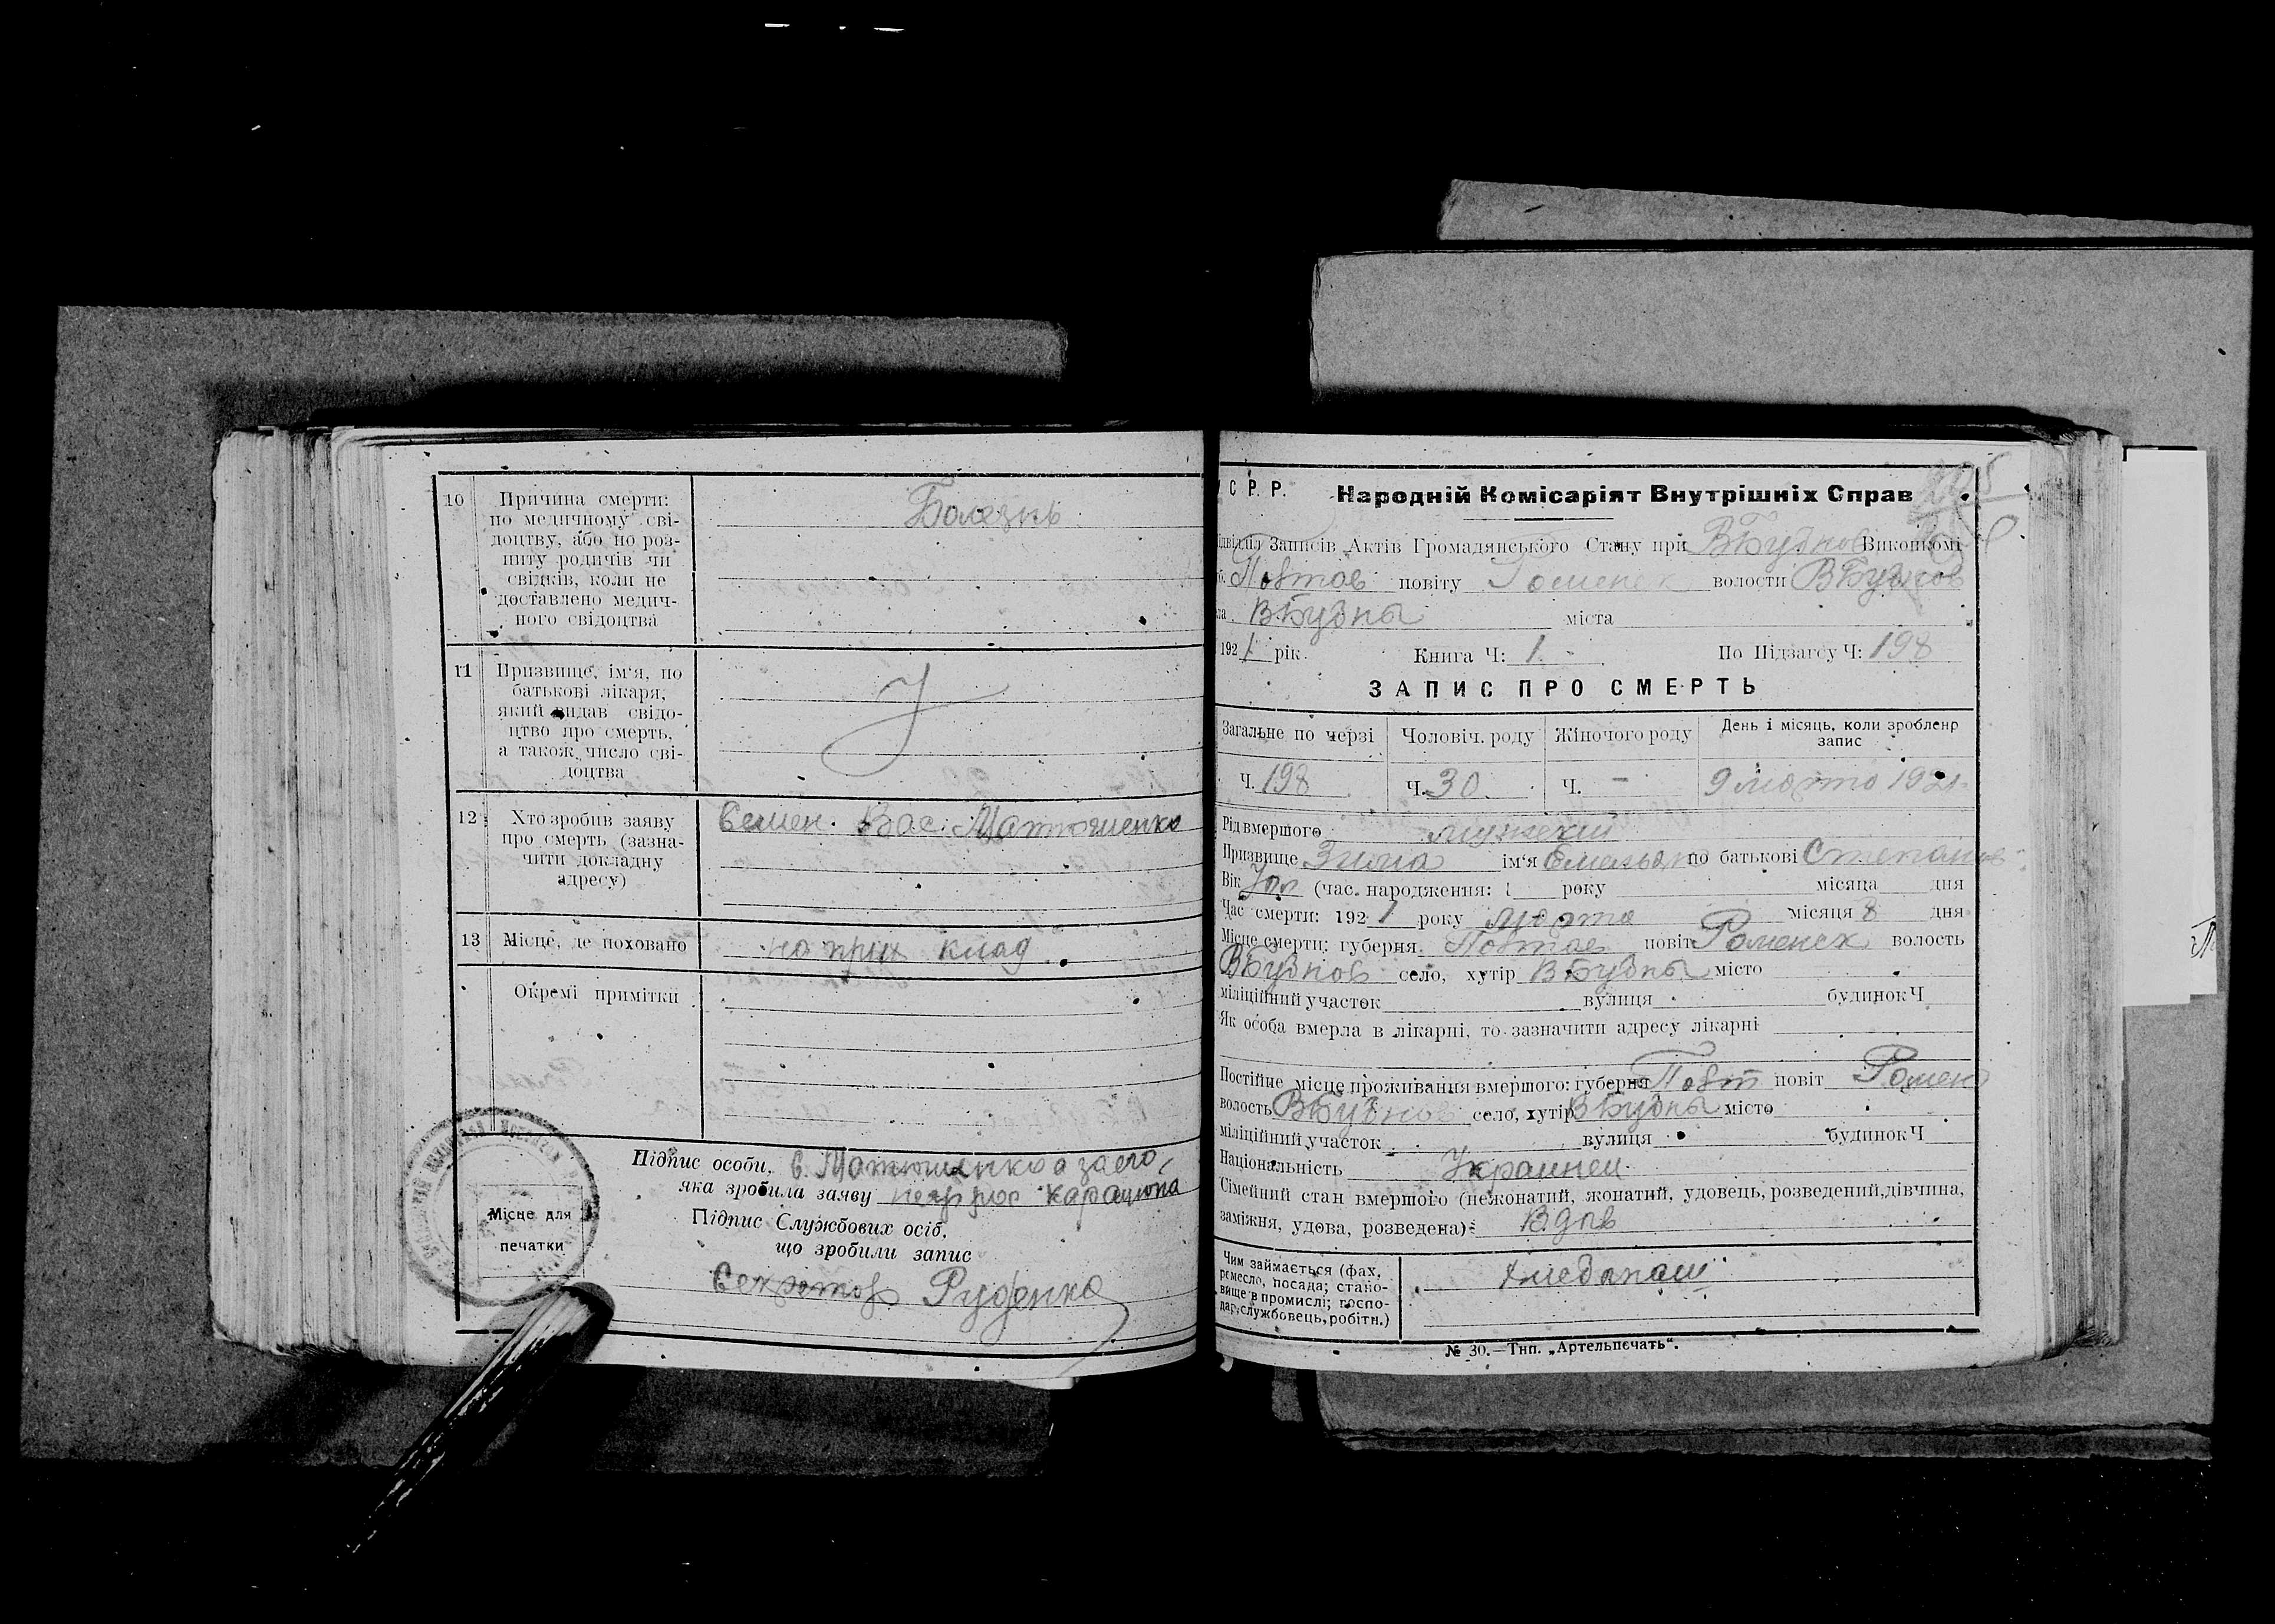 10 Причина смерти: Болезнь
по медичному сві-
доцтву, або по роз-
питу родичів чи
свідків, коли не
доставлено медич-
ного свідоцтва
11 Призвище, ім'я, по
батькові лікаря,
який видав свідо-
цтво про смерть,
а також число сві-
доцтва
12 Хто зробив заяву Семен. Вас. Матюшенко
про смерть (зазна-
чити докладну
адресу)
13 Місце, де поховано на прих клад.
Окремі примітки
Підпис особи, С. Матюшенко а за его
яка зробила заяву
Підпис Службових осіб,
що зробили запис
Місце для
печатки
Секретарь Руденко
С Р. Р. Народній Комісаріят Внутрішніх Справ
Підвідділ Записів Актів Громадянського Стану при ВБубнов Виконкомі
Полтав повіту Роменск волости ВБубнов
В.Бубны міста
1921 рік. Книга Ч: 1. По Підзагсу Ч: 198
ЗАПИС ПРО СМЕРТЬ
Загальне по черзі Чоловіч. роду Жіночого роду День і місяць, коли зроблено
запис
Ч. 198 Ч. 30 Ч. - 9 марта 1921.
Рід вмершого мужский
Призвище Зима ім'я Емельян по батькові Степанов
Вік (час. народження: 1 року місяца дня
Час смерти: 1921 року марта місяця 8 дня
Місце смерти: губерня Полтав повіт Роменск волость
ВБубнов село, хутір ВБубны місто
міліційний участок вулиця будинок Ч
Як особа вмерла в лікарні, то зазначити адресу лікарні
Постійне місце проживання вмершого: губерня Полт повіт Ромен
волость ВБубнов село, хутір ВБубны місто
міліційний участок вулиця будинок Ч
Національність Украинец
Сімейний стан вмершого (нежонатий, жонатий, удовець, розведений, дівчина,
заміжня, удова, розведена): Вдов
Чим займається (фах, хлебопаш
ремесло, посада; стано-
вище в промислі; госпо-
дар, службовець, робітн.)
№ 30.—Тип. „Артельпечать“.